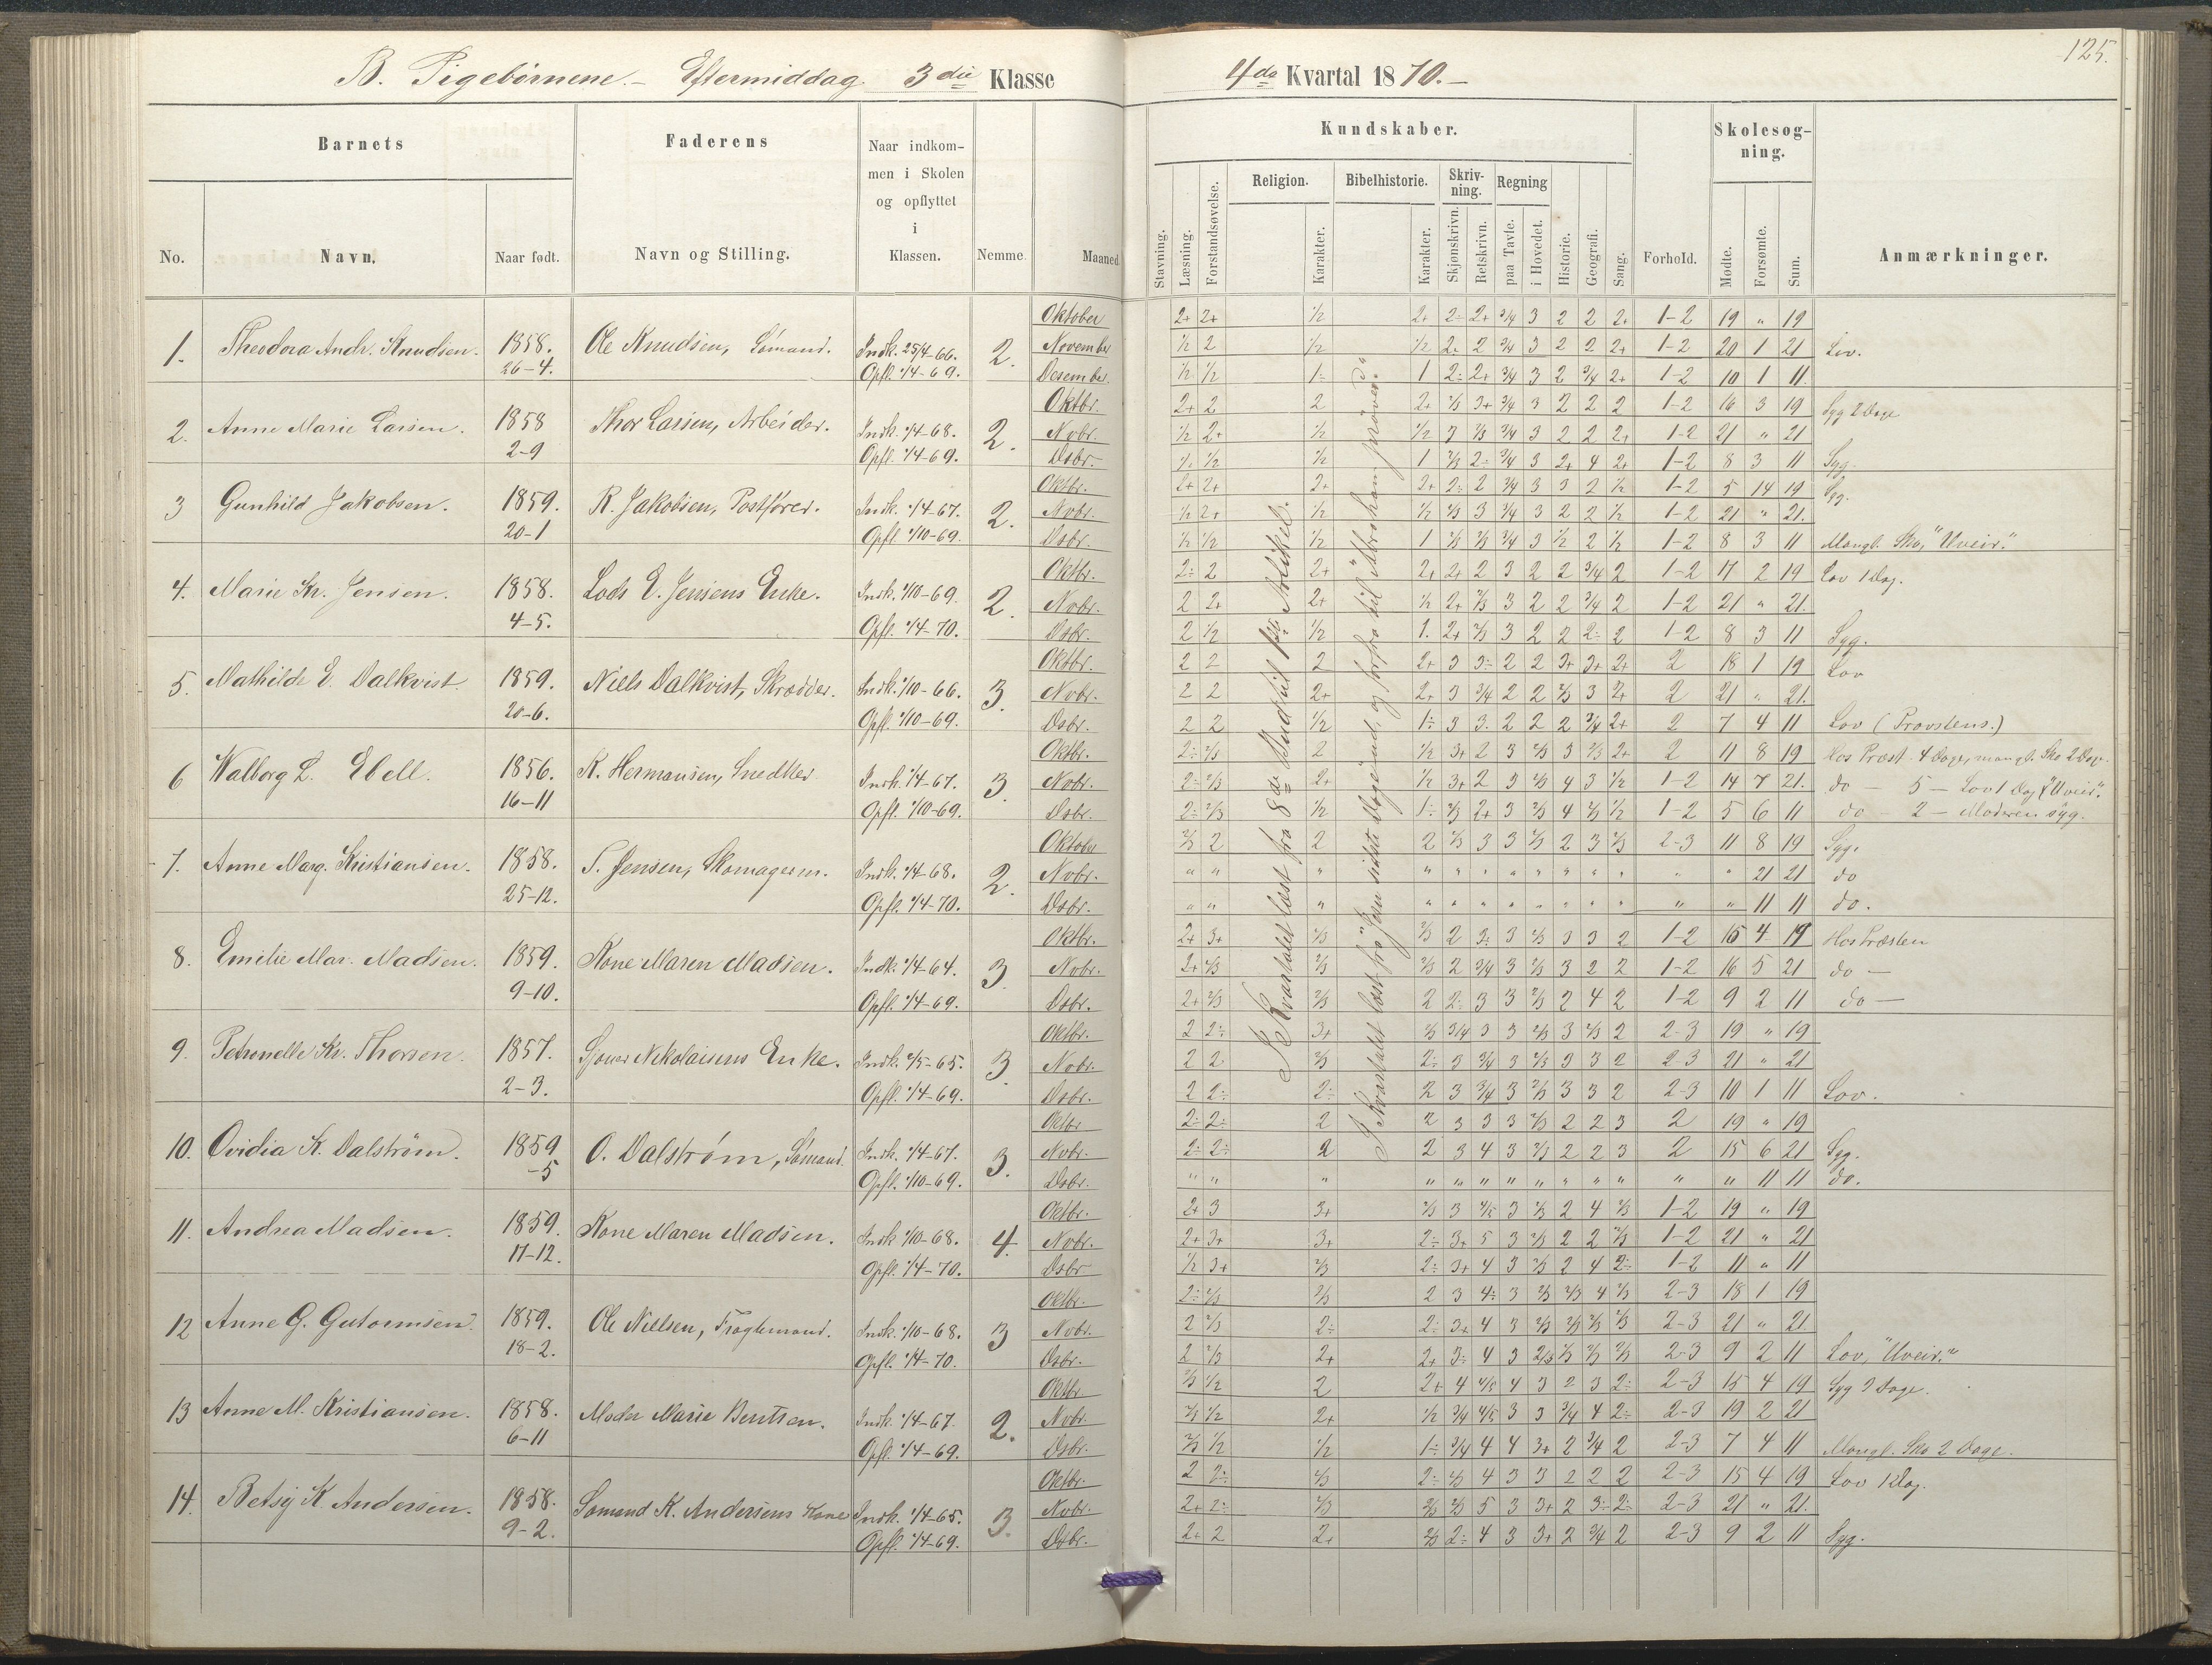 125.
B. Pigebørnene - Eftermiddag 3die Klasse
4de Kvartal 1870. -
Barnets
Faderens
Naar indkommen i Skolen og opflyttet i Klassen.
Nemme
Maaned
Kundskaber.
Forhold.
Skolesøgning.
Anmærkninger.
No.
Navn.
Naar født.
Navn og Stilling.
Stavning.
Læsning.
Forstandsøvelse.
Religion.
Karakter.
Bibelhistorie.
Karakter.
Skrivning.
Skjønskrivn.
Retskrivn.
Regning
paa Tavle.
i Hovedet.
Historie.
Geografi.
Sang.
Mødte.
Forsømte.
Sum.
1. Theodora Andr. Knudsen. 1858. 26-4. Ole Knudsen, Sømand. Indk. 25/4-66. Opfl. 1/4-69. 2.
Oktober 2+ 2+ 1/2 2+ 2÷ 2+ 3/4 3 2 2 2+ 1-2 19 " 19
November 1/2 2 1/2 1/2 2+ 2 3/4 3 2 2 2+ 1-2 20 1 21 Lov.
Desember 1/2 1/2 1÷ 1 2÷ 2+ 3/4 3 2 3/4 2+ 1-2 10 1 11
2. Anne Marie Larsen. 1858 2-9 Thor Larsen, Arbeider. Indk. 1/4-68. Opfl. 1/4-69. 2.
Oktbr. 2+ 2 2 2+ 2/3 3+ 3/4 3 2 2 2 1-2 16 3 19 Syg 2 Dage
Novbr. 1/2 2+ 1/2 1/2 3 2/3 3/4 3 2 2 2+ 1-2 21 " 21
Dsbr. 1/2 1/2 1/2 1 2/3 2÷ 3/4 3 2+ 4 2+ 1-2 8 3 11 Syg.
3 Gunhild Jakobsen. 1859. 20-1 R. Jakobsen, Postfører. Indk. 1/4-67. Opfl. 1/10-69. 2.
Oktbr. 2+ 2+ 2+ 2+ 2÷ 2 3/4 3 3 2 1/2 1-2 5 14 19 Syg.
Novbr. 1/2 2+ 1/2 1/2 2/3 3 3/4 3 2 2 1/2 1-2 21 " 21.
Dsbr. 1/2 1/2 1/2 1 2/3 2/3 3/4 3 1/2 2 1/2 1-2 8 3 11 Mangl. Sko, "Uveir."
4. Marie Kr. Jensen. 1858. 4-5. Lods E. Jensens Enke. Indk. 1/10-69. Opfl. 1/4-70. 2.
Oktbr. 2÷ 2 2+ 2+ 2+ 2 3 2 2 3/4 2 1-2 17 2 19 Lov 1 Dag.
Novbr. 2 2+ 2+ 1/2 2+ 2/3 3 2 2 3/4 2 1-2 21 " 21.
Dsbr. 2 1/2 1/2 1. 2+ 2/3 3 2 2 2÷ 2 1-2 8 3 11 Syg.
5. Mathilde E. Dalkvist. 1859. 20-6. Niels Dalkvist, Skrædder. Indk. 1/10-66. Opfl. 1/10-69. 3.
Oktbr. 2 2 2 2+ 3 3÷ 2 2 3+ 3+ 2+ 2 18 1 19 Lov
Novbr. 2 2 2+ 2+ 3 3/4 2 2 2/3 3 2+ 2 21 " 21.
Dsbr. 2 2 1/2 1÷ 3 3. 2 2 2 3/4 2+ 2 7 4 11 Lov (Provstens.)
6 Walborg L. Ebell. 1856. 16-11 K. Hermansen, Snedker Indk. 1/4-67. Opfl. 1/10-69. 3.
Oktbr. 2÷ 2/3 2 1/2 3+ 2 3 2/3 3 2/3 2+ 2 11 8 19 Hos Præst. 4 Dage, mangl. Sko 2 Dage.
Novbr. 2÷ 2/3 2+ 1/2 3+ 2 3 2/3 4 3 1/2 1-2 14 7 21. do - 5 - Lov 1 Dag "Uveir".
Dsbr. 2÷ 2/3 1/2 1÷ 2/3 2+ 3 2/3 4 2/3 1/2 1-2 5 6 11 do - 2 - Moderen syg.
7. Anne Marg. Kristiansen. 1858. 25-12. S. Jensen, Skomagerm. Indk. 1/4-68. Opfl. 1/4-70. 2.
Oktober 2/3 2 2 2 2/3 3 3 2/3 2 3 2/3 2-3 11 8 19 Syg.
Novbr. " " " " " " " " " " " " " 21 21 do
Dsbr. " " " " " " " " " " " " " 11 11 do.
8. Emilie Mar. Madsen. 1859. 9-10. Kone Maren Madsen. Indk. 1/4-64. Opfl. 1/4-69. 3.
Oktbr. 2+ 3+ 2/3 2/3 2 3÷ 3 2/3 3 3 2 1-2 15 4 19 Hos Præsten
Novbr. 2+ 2/3 2/3 2/3 2 3/4 3 2/3 3 2 2 1-2 16 5 21 do -
Dsbr. 2+ 2/3 2/3 2 2÷ 3 3 2/3 2 4 2 1-2 9 2 11 do -
9. Petronelle Kr. Thorsen. 1857. 2-3. Nikolaisens Enke. Indk. 1/5-65. Opfl. 1/4-69. 3.
Oktbr. 2 2÷ 3+ 2/3 3/4 3 3 2/3 3 2/3 2 2-3 19 " 19
Novbr. 2 2 2/3 2÷ 3 3/4 3 2/3 3 3 2 2-3 21 " 21
Dsbr. 2 2÷ 2÷ 2 3 3/4 3 2/3 3 3 2 2-3 10 1 11 Lov.
10. Ovidia K. Dalstrøm. 1859 -5 O. Dalstrøm, Sømand. Indk. 1/4-67. Opfl. 1/10-69. 3.
Oktbr 2÷ 2÷ 2 2 3 3 3 2/3 2 2 3 2 19 " 19
Novbr. 2÷ 2÷ 2 2 3 4 3 2/3 2 2 3 2 15 6 21 Syg.
Dsbr. " " " " " " " " " " " " " 11 11 do.
11. Andrea Madsen. 1859. 17-12. Kone Maren Madsen. Indk. 1/10-68. Opfl. 1/4-70. 4.
Oktbr. 2+ 3 3+ 2/3 3 4/5 3 2/3 2 4 2/3 1-2 19 " 19
Novbr. 2+ 3+ 3+ 2÷ 3+ 5 3 2/3 2 2 2/3 1-2 21 " 21
Dsbr 1/2 3+ 2/3 2÷ 3+ 4 3 2/3 2 4 2÷ 1-2 11 " 11
12 Anne G. Gutormsen. 1859. 18-2. Ole Nielsen, Fragtemand. Indk. 1/10-68. Opfl. 1/4-70. 3
Oktbr. 2÷ 2/3 2/3 2 3 4÷ 3 2/3 2/3 4 2/3 2-3 18 1 19
Novbr. 2 2/3 2÷ 2÷ 3+ 4 3 2/3 2/3 2/3 2/3 2-3 21 " 21
Dsbr. 2 2/3 2+ 2+ 3÷ 4 3 2/3 2/3 2/3 2/3 2-3 9 2 11 Lov, "Uveir."
13 Anne M. Kristiansen. 1858. 6-11 Moder Marie Bentsen. Indk. 1/4-67. Opfl. 1/4-69. 2.
Oktbr. 2/3 1/2 2 2+ 4 4/5 4 3 2 3 2÷ 2-3 15 4 19 Syg 2 Dage.
Novbr. 2/3 1/2 2+ 1/2 3/4 4/5 3 3 3/4 4 2÷ 2-3 19 2 21
Dsbr. 2/3 1/2 1/2 1÷ 3/4 4 4 3+ 2 3/4 2 2-3 7 4 11 Mangl. Sko 2 Dage.
14. Betsy K. Andersen. 1858. 9-2. Sømand K. Andersens Kone Indk. 1/4-65. Opfl. 1/4-69. 3.
Oktbr. 2 2÷ 2/3 2÷ 2/3 4 3 3 2 2 2 2-3 15 4 19 Lov 1 Dag.
Novbr. 2+ 2÷ 2/3 2/3 2/3 5 3 3+ 2 3÷ 2÷ 2-3 21 " 21.
Dsbr. 2+ 2 2+ 2/3 2÷ 4 3 3+ 2 3/4 2 2-3 9 2 11 Syg.
I Kvartalet læst fra 8de Bud til 1ste Artikel.
I Kvartalet læst fra "Jesu sidste og forfra til "Abraham prøves" do